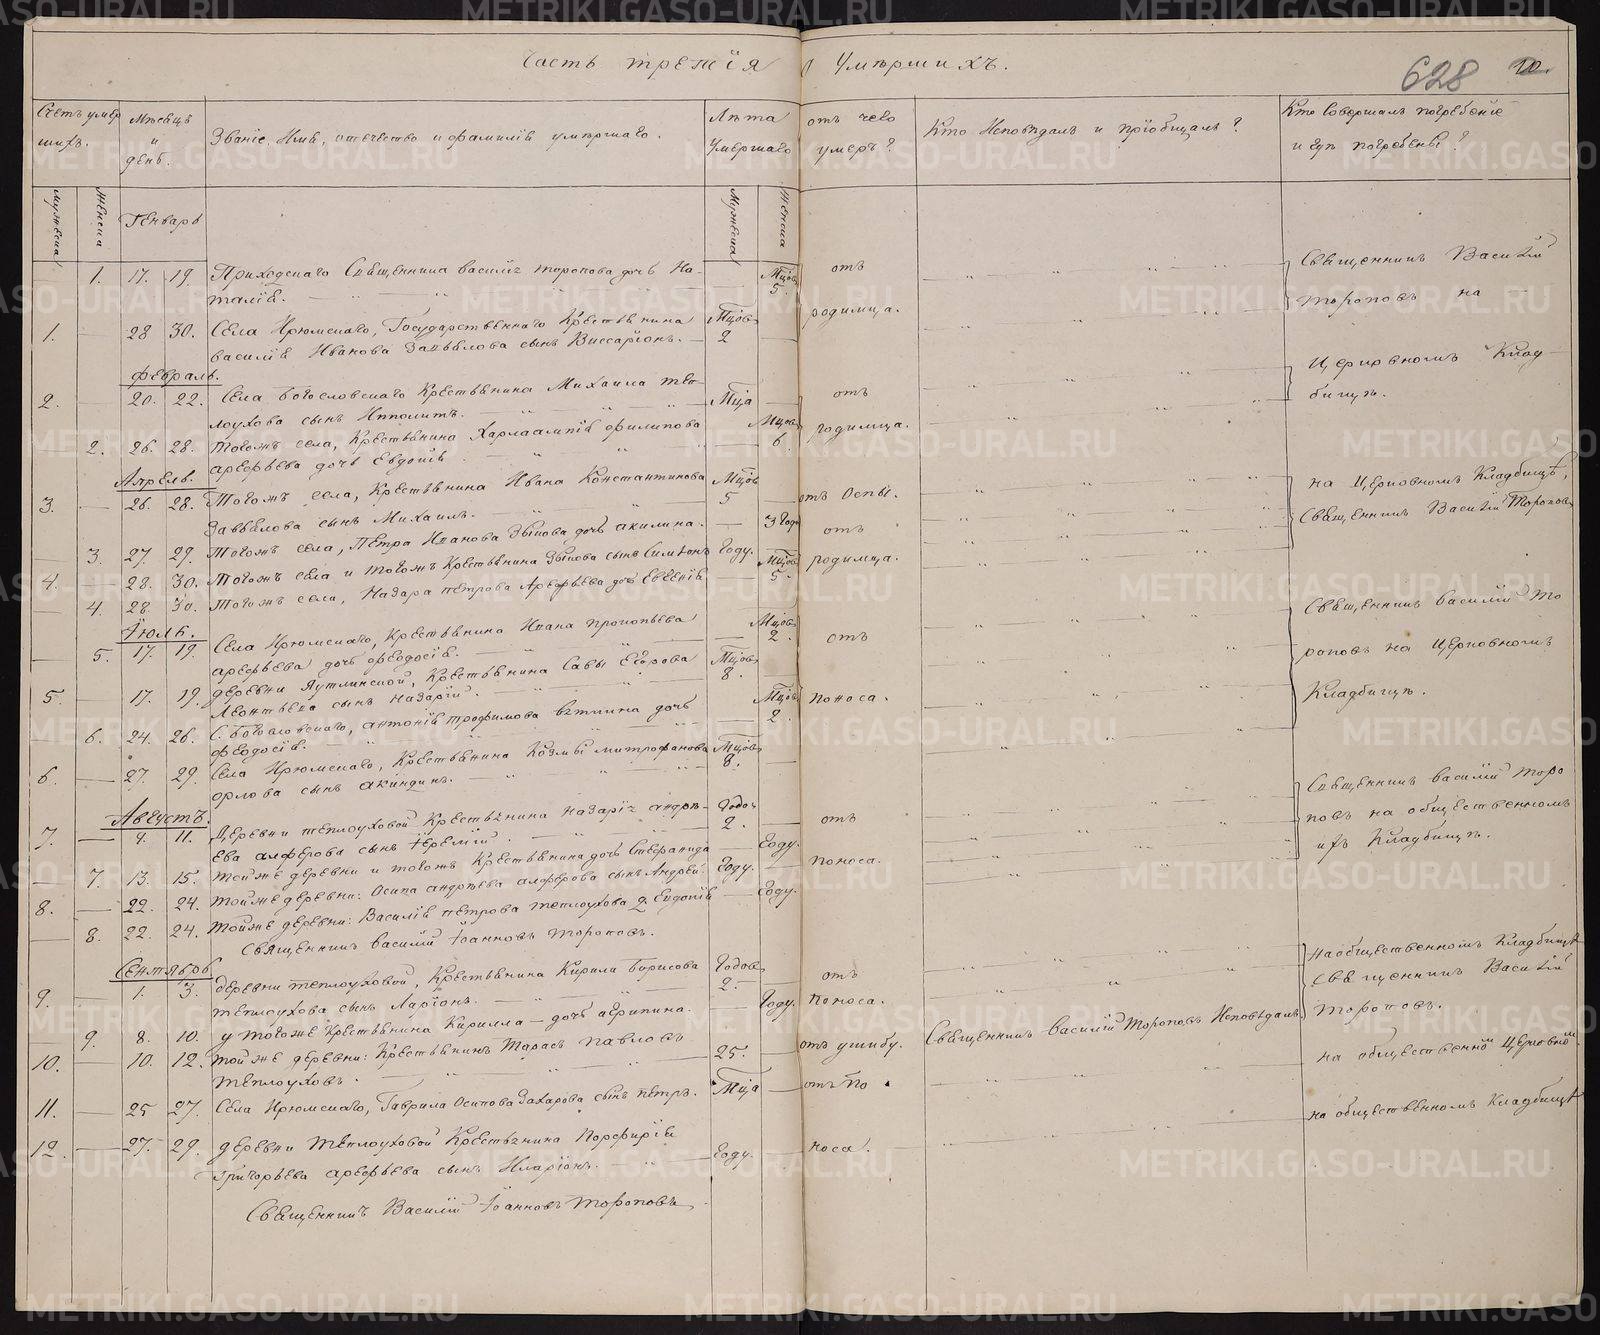 Часть третія
О Умершихъ.
628
Счетъ умер
шихъ.
Мѣсяцъ
и
день.
Званіе, Имя, отечество и фамилія умершаго.
Лѣта
Умершаго
отъ чего
умеръ?
Кто Исповѣдалъ и пріобщалъ?
Кто Совершалъ погребеніе
и гдѣ погребены?
Мужеска
Женска
Генварь
Мужеска
Женска
1. 17. 19. Приходскаго Священника Василія Торопова дочь На- Мцовъ 5. отъ
талія.
1. — 28 30. Села Ирюмскаго, Государственнаго Крестьянина Мцовъ 2 — родимца.
Василія Иванова Завьялова сынъ Виссаріонъ.
Священникъ Василій
Тороповъ на
Церковномъ Клад-
бищѣ.
Февраль.
2. — 20. 22. Села Богословскаго Крестьянина Михаила Теп- Мца — отъ
лоухова сынъ Ипполитъ.
— 2. 26. 28. Тогожъ села, Крестьянина Харлампія Филипова — Мцовъ 6. родимца.
арефьева дочь Евдокія
Апрель.
3. — 26. 28. Тогожъ села, Крестьянина Ивана Константинова Мцовъ 5 — отъ Оспы.
Завьялова сынъ Михаилъ.
3. 27. 29. Тогожъ села, Петра Иванова Зыкова дочь акилина. — 3 Года отъ
4. 28. 30. Тогожъ села и тогожъ Крестьянина Зыкова сынъ Симеонъ Году. родимца.
— 4 28 30. Тогожъ села, Назара Петрова Арефьева дочь Евгенія — Мцовъ 5.
на Церковномъ Кладбищѣ,
Священникъ Василій Тороповъ
Іюль.
— 5. 17. 19. Села Ирюмскаго, Крестьянина Ивана Прокопьева — Мцовъ 2. отъ
арефьева дочь Феодосія.
5. — 17. 19. деревни Яутлинской, Крестьянина Савы Егорова Мцовъ 8. поноса.
Леонтьева сынъ Назарій.
6. 24. 26. С. Богословскаго, антонія трофимова вяткина дочь Мцовъ 2.
Феодосія.
6. — 27. 29. Села Ирюмскаго, Крестьянина Козмы митрофанова Мцовъ 8. —
орлова сынъ акиндинъ.
Священникъ Василій То
роповъ на Церковномъ
Кладбищѣ.
Августъ.
7. — 9. 11. Деревни теплоуховой Крестьянина Назарія андре- Годовъ 2. отъ
ева алферова сынъ Іеремій.
— 7. 13. 15. тойже деревни и тогожъ Крестьянина дочь Стефанида — Году. поноса.
8. — 22. 24. тойже деревни: Осипа андреева алферова сынъ Андрей. Году. —
— 8. 22. 24. тойже деревни: Василія петрова теплоухова д. Евдокія — Году.
Священникъ Василій Іоанновъ Тороповъ.
Священникъ Василій Торо
повъ на общественномъ
ихъ Кладбищѣ.
Сентябрь
9. — 1. 3. деревни теплоуховой, Крестьянина Кирила Борисова Годовъ 2. — отъ
теплоухова сынъ Ларіонъ.
— 9. 8. 10. у тогоже Крестьянина Кирилла — дочь агрипина. — Году. поноса.
10. 10. 12. тойже деревни: Крестьянинъ Тарасъ Павловъ 25. — отъ ушибу. Священникъ Василій Тороповъ Исповѣдалъ
теплоуховъ.
11. — 25 27. Села Ирюмскаго, Гаврила Осипова Захарова сынъ петръ. Мца — отъ по
12. — 27. 29. деревни теплоуховой Крестьянина Порфирія Году. — носа.
Григорьева арефьева сынъ Иларіонъ.
Священникъ Василій Іоанновъ Тороповъ
На общественномъ Кладбищѣ
Священникъ Василій
Тороповъ.
на общественномъ Церковномъ
на общественномъ Кладбищѣ
METRIKI.GASO-URAL.RU